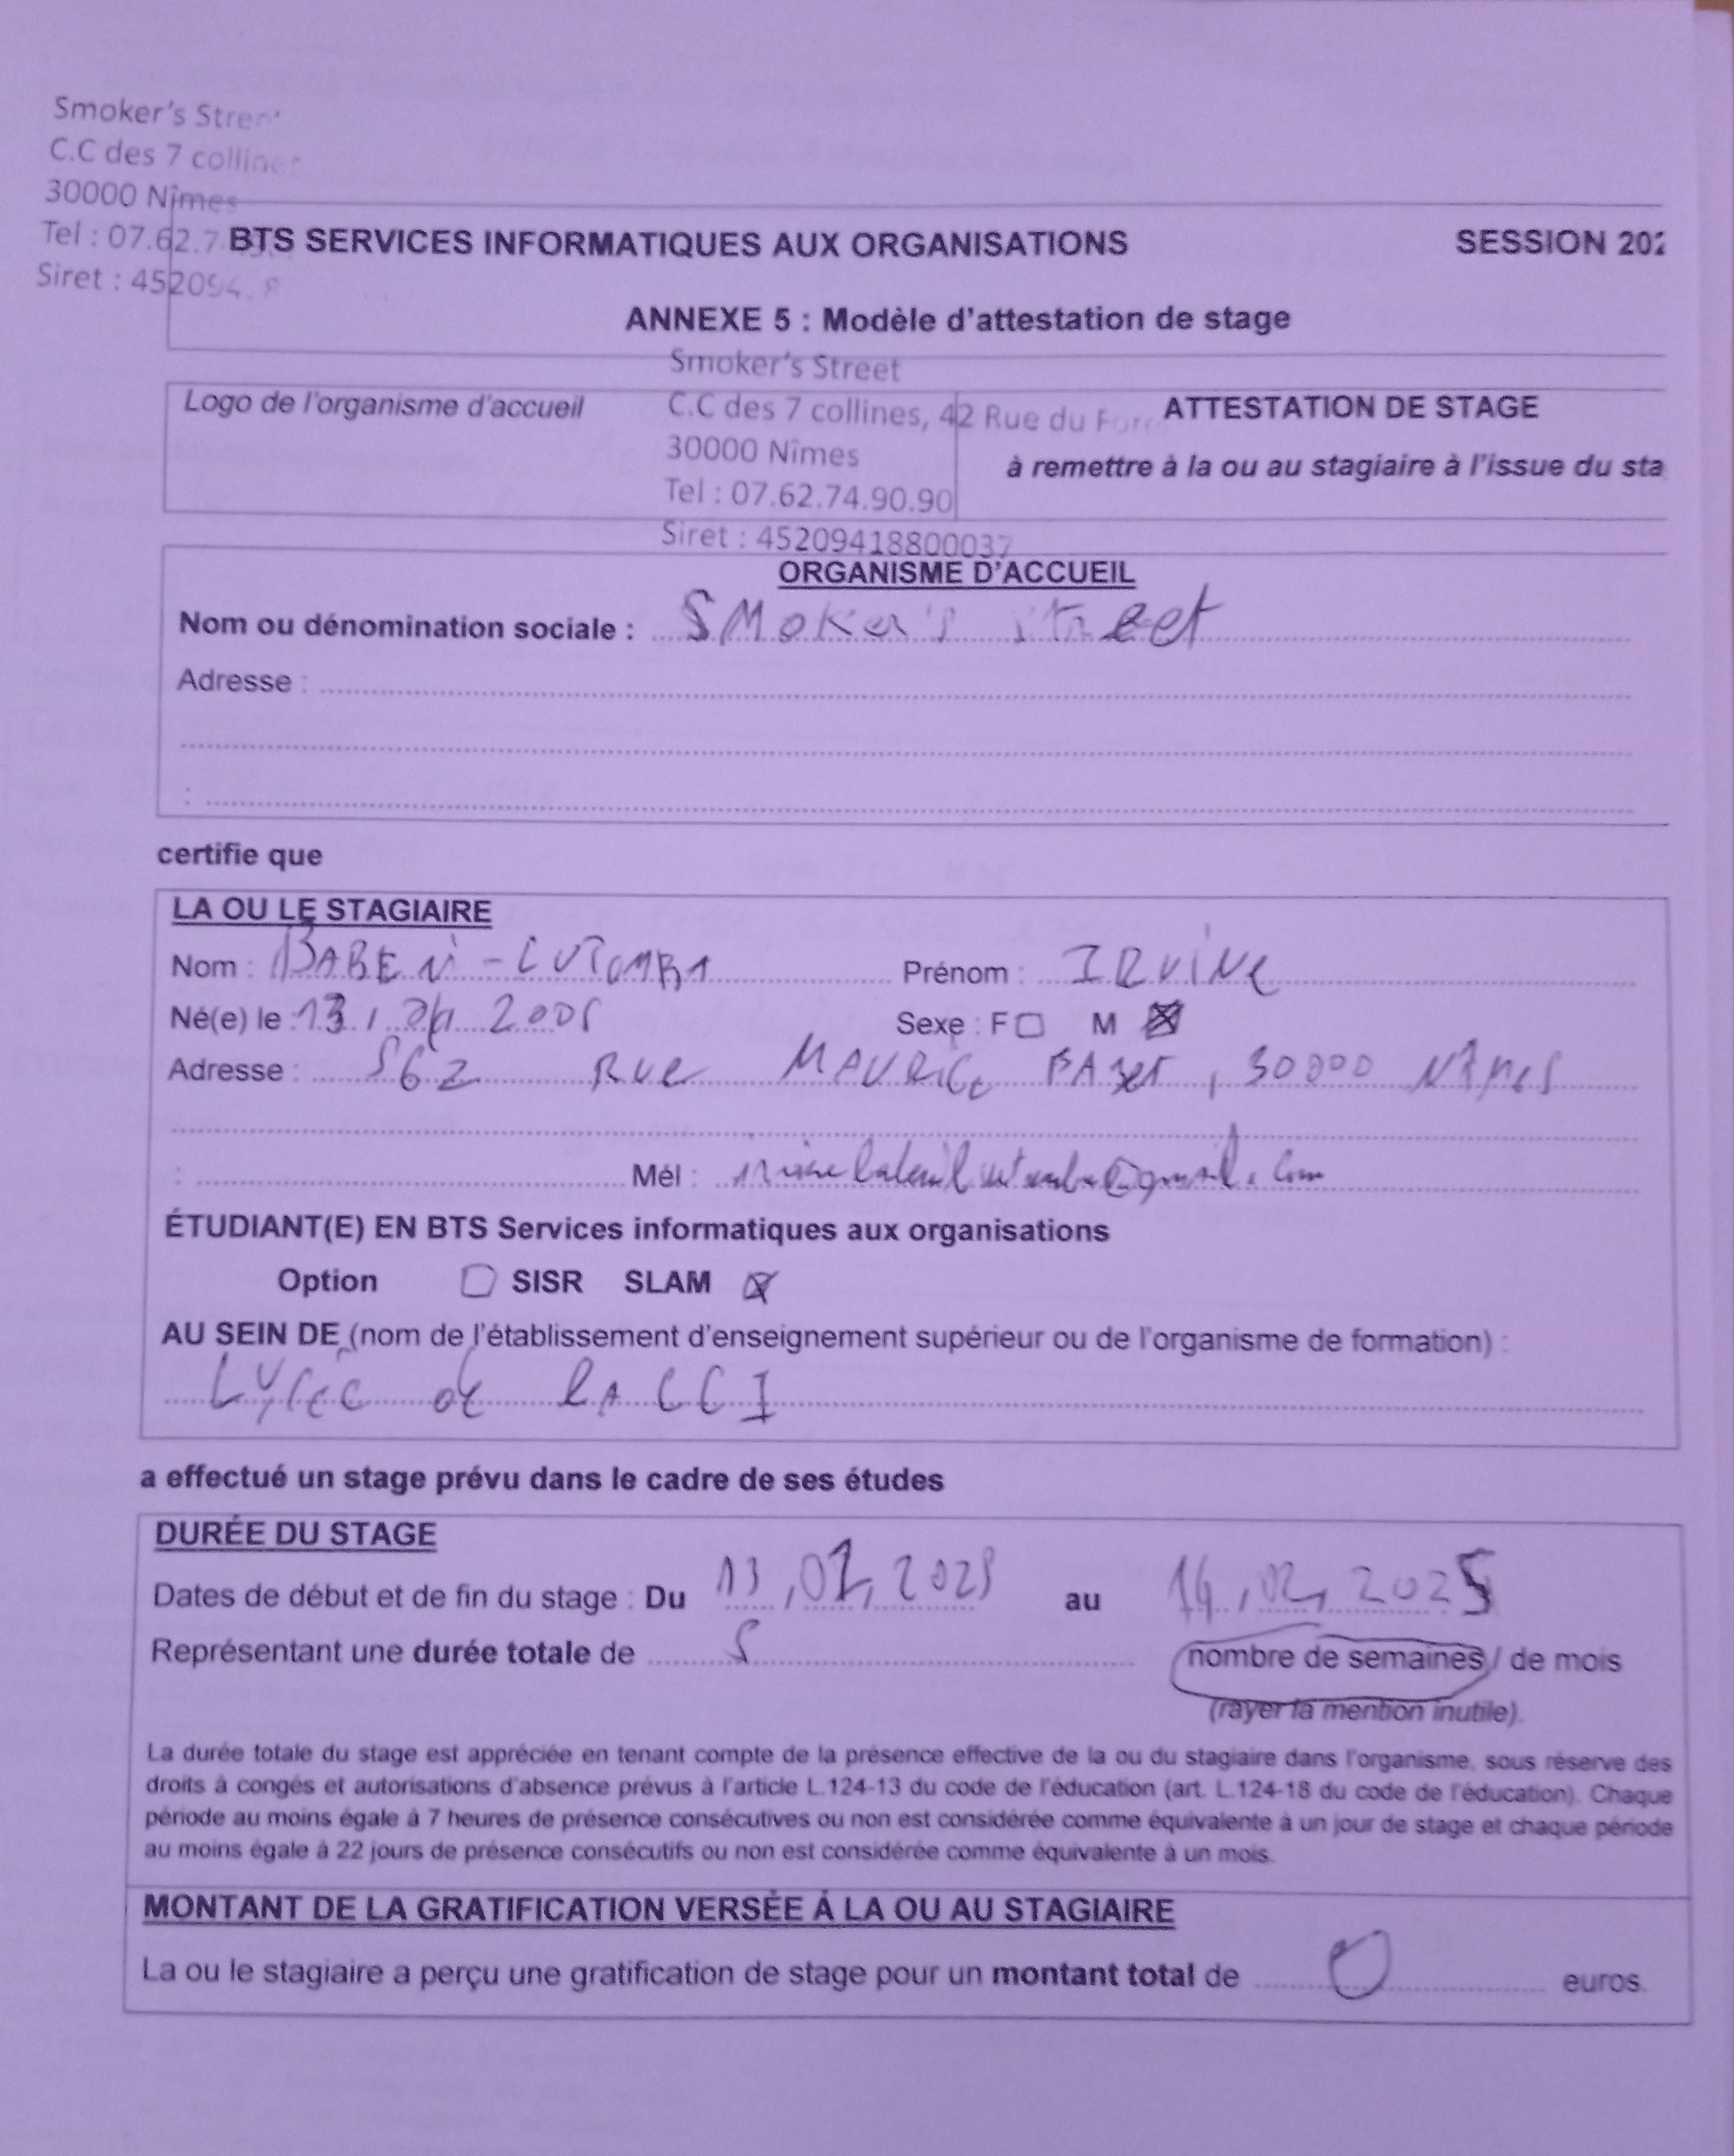 Smoker's Street
C.C des 7 collines
30000 Nîmes
Tel : 07.62.7
Siret : 452094
BTS SERVICES INFORMATIQUES AUX ORGANISATIONS SESSION 202
ANNEXE 5 : Modèle d'attestation de stage
Smoker's Street
Logo de l'organisme d'accueil
C.C des 7 collines, 42 Rue du
30000 Nîmes
Tel : 07.62.74.90.90
Siret : 45209418800037
ATTESTATION DE STAGE
à remettre à la ou au stagiaire à l'issue du sta
ORGANISME D'ACCUEIL
Nom ou dénomination sociale : SMoker's street
Adresse :
:
certifie que
LA OU LE STAGIAIRE
Nom : BABENi-LUTOMBA Prénom : IRViNe
Né(e) le : 13 / 2005 Sexe : F M
Adresse : 562 Rue MAURiCe , 30000 NîMes
: Mél : @gmail.com
ÉTUDIANT(E) EN BTS Services informatiques aux organisations
Option SISR SLAM
AU SEIN DE (nom de l'établissement d'enseignement supérieur ou de l'organisme de formation) :
LYCEE de LA CCI
a effectué un stage prévu dans le cadre de ses études
DURÉE DU STAGE
Dates de début et de fin du stage : Du 13, 01, 2025 au 14, 02, 2025
Représentant une durée totale de 5 nombre de semaines / de mois
(rayer la mention inutile).
La durée totale du stage est appréciée en tenant compte de la présence effective de la ou du stagiaire dans l'organisme, sous réserve des
droits à congés et autorisations d'absence prévus à l'article L.124-13 du code de l'éducation (art. L.124-18 du code de l'éducation). Chaque
période au moins égale à 7 heures de présence consécutives ou non est considérée comme équivalente à un jour de stage et chaque période
au moins égale à 22 jours de présence consécutifs ou non est considérée comme équivalente à un mois.
MONTANT DE LA GRATIFICATION VERSÉE À LA OU AU STAGIAIRE
La ou le stagiaire a perçu une gratification de stage pour un montant total de 0 euros.